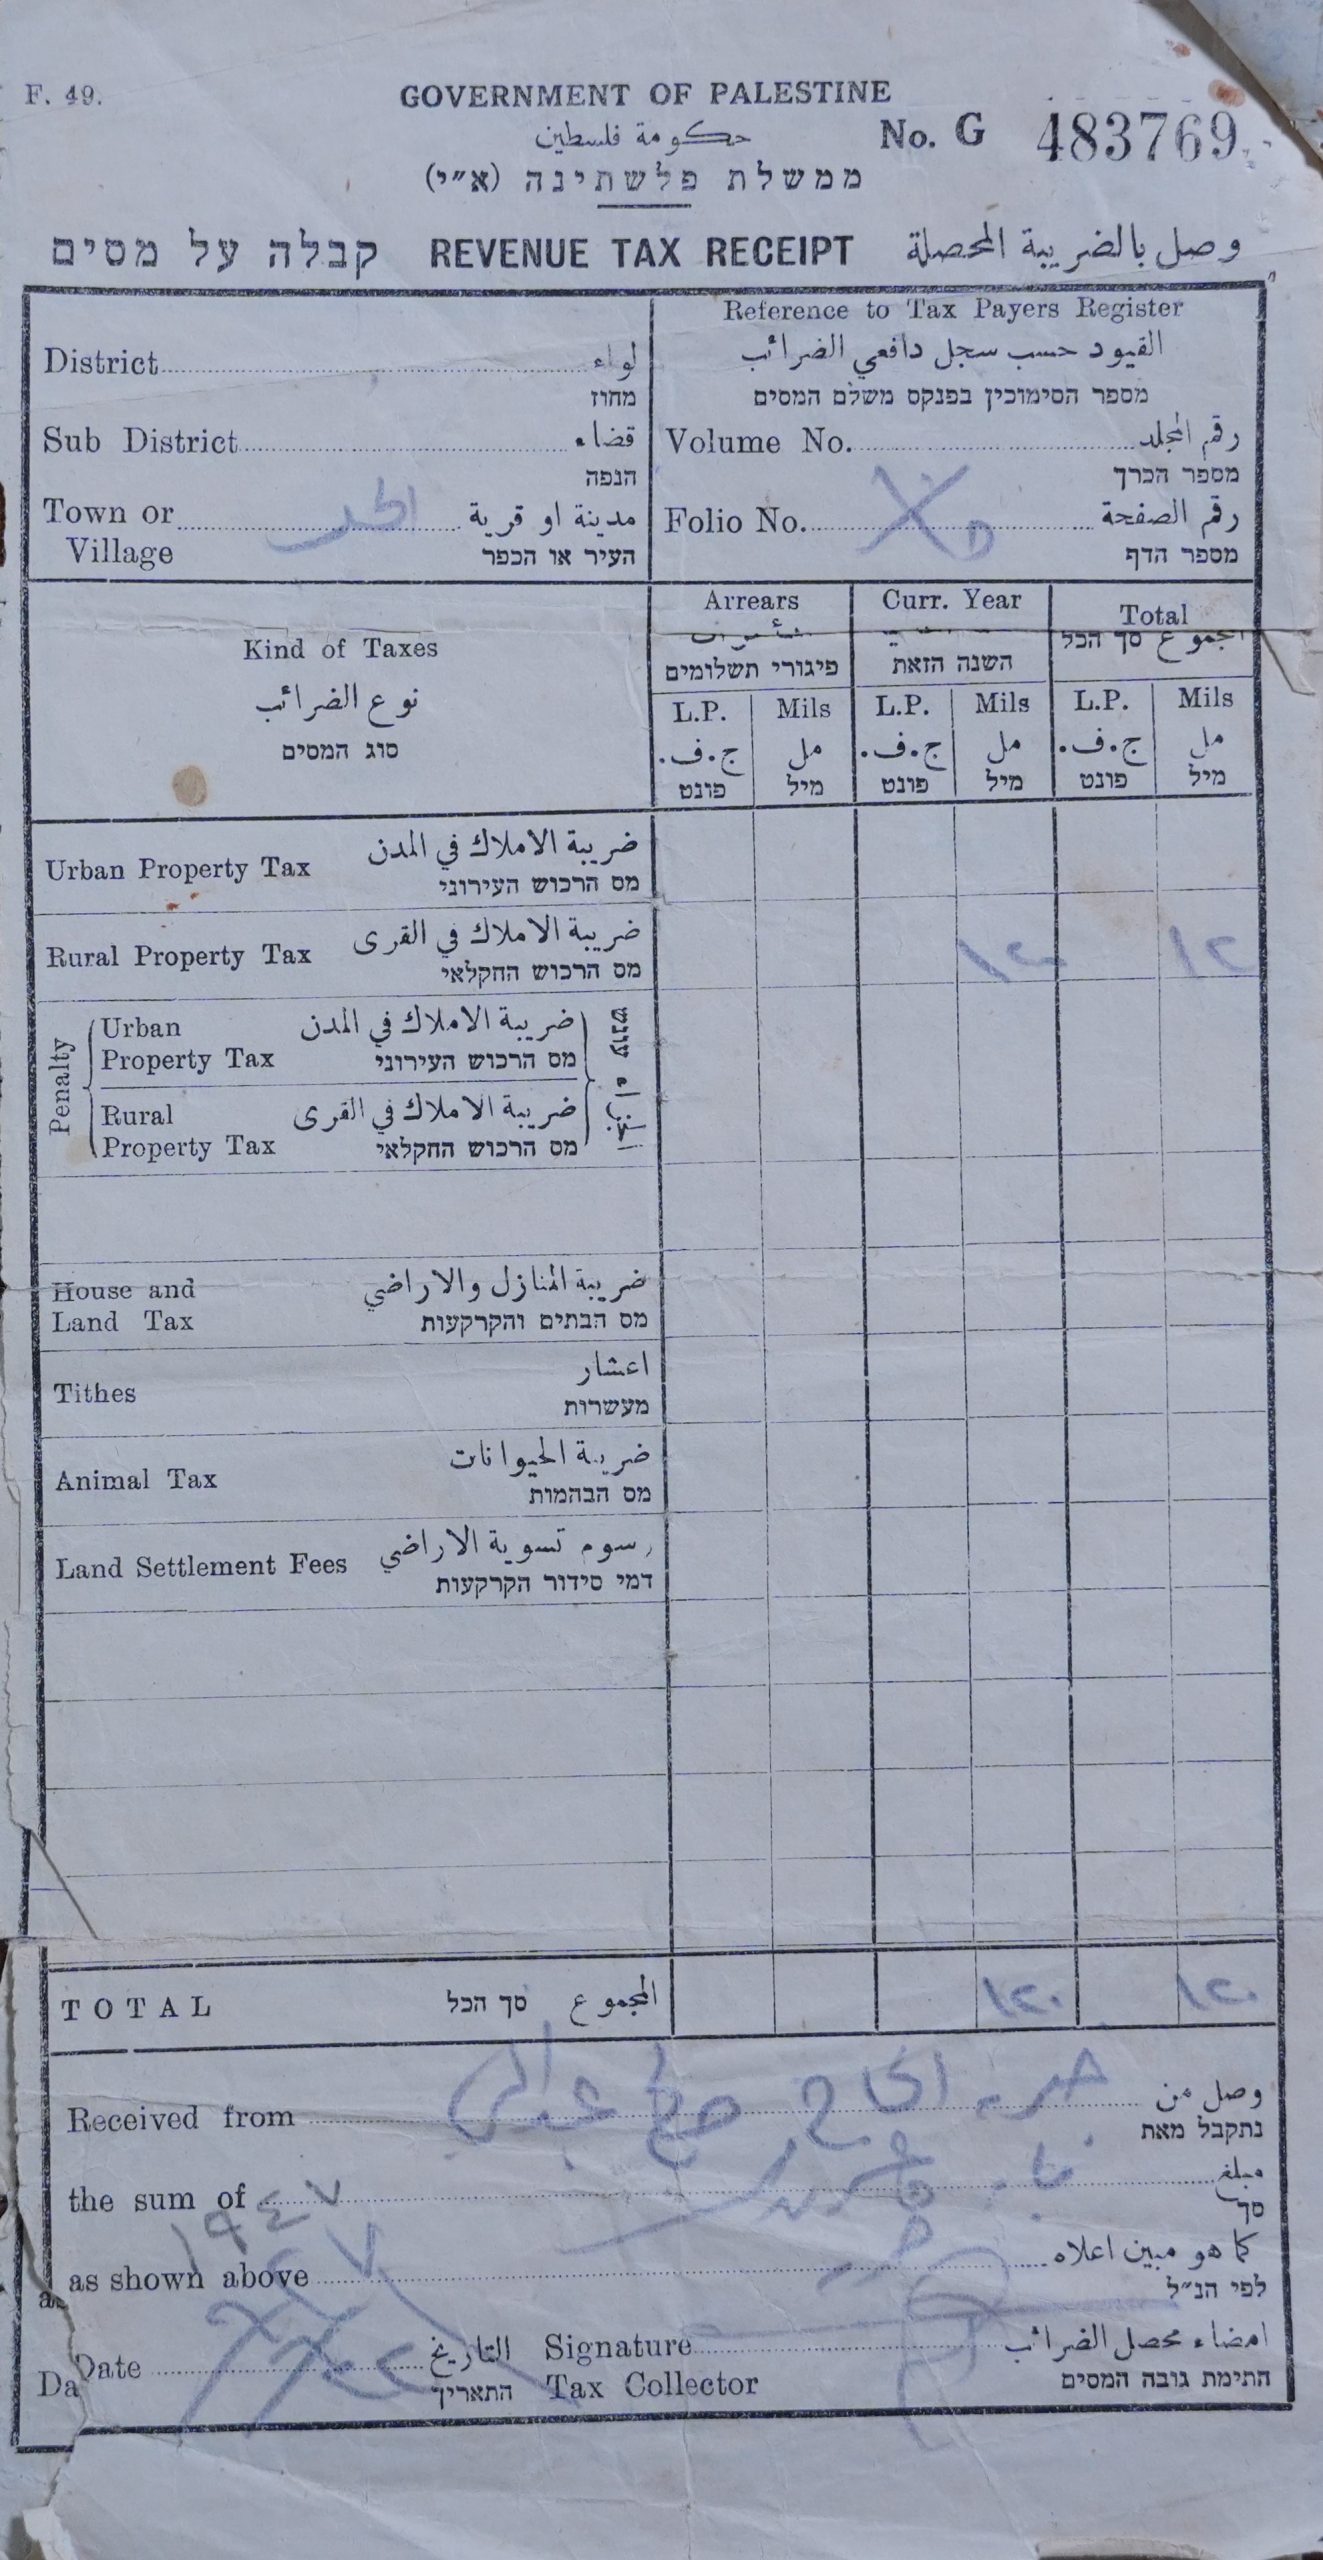 F. 49.
GOVERNMENT OF PALESTINE
حكومة فلسطين
No. G 483769
ממשלת פלשתינה (א״י)
קבלה על מסים REVENUE TAX RECEIPT وصل بالضريبة المحصلة
District لواء
מחוז
Sub District قضاء
הנפה
Town or مدينة او قرية
Village העיר או הכפר
Reference to Tax Payers Register
القيود حسب سجل دافعي الضرائب
מספר הסימוכין בפנקס משלם המסים
Volume No. رقم المجلد
מספר הכרך
Folio No. رقم الصفحة
מספר הדף
Kind of Taxes
نوع الضرائب
סוג המסים
Arrears Curr. Year Total
المجموع סך הכל
פיגורי תשלומים השנה הזאת
L.P. Mils L.P. Mils L.P. Mils
ج.ف. مل ج.ف. مل ج.ف. مل
פונט מיל פונט מיל פונט מיל
Urban Property Tax ضريبة الاملاك في المدن
מס הרכוש העירוני
Rural Property Tax ضريبة الاملاك في القرى ١٢٠ ١٢
מס הרכוש החקלאי
Penalty
Urban ضريبة الاملاك في المدن
Property Tax מס הרכוש העירוני
Rural ضريبة الاملاك في القرى
Property Tax מס הרכוש החקלאי
עונש
House and ضريبة المنازل والاراضي
Land Tax מס הבתים והקרקעות
Tithes اعشار
מעשרות
Animal Tax ضريبة الحيوانات
מס הבהמות
Land Settlement Fees رسوم تسوية الاراضي
דמי סידור הקרקעות
TOTAL סך הכל المجموع ١٢٠ ١٢٠
Received from وصل من
נתקבל מאת
the sum of مبلغ
סך
١٩٤٧
as shown above كما هو مبين اعلاه
לפי הנ״ל
Date التاريخ Signature امضاء محصل الضرائب
התאריך Tax Collector חתימת גובה המסים